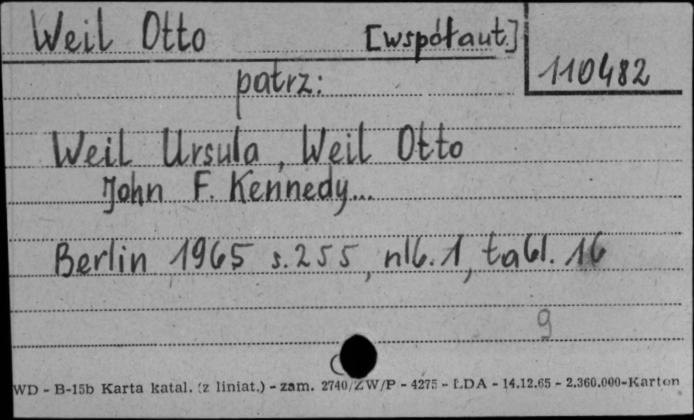 Weil Otto [współaut.]
110482
patrz:
Weil Ursula, Weil Otto
John F. Kennedy...
Berlin 1965 s. 255, nlb. 1, tabl. 16
9
WD - B-15b Karta katal. (z liniat.) - zam. 2740/ZW/P - 4275 - LDA - 14.12.65 - 2.360.000-Karton